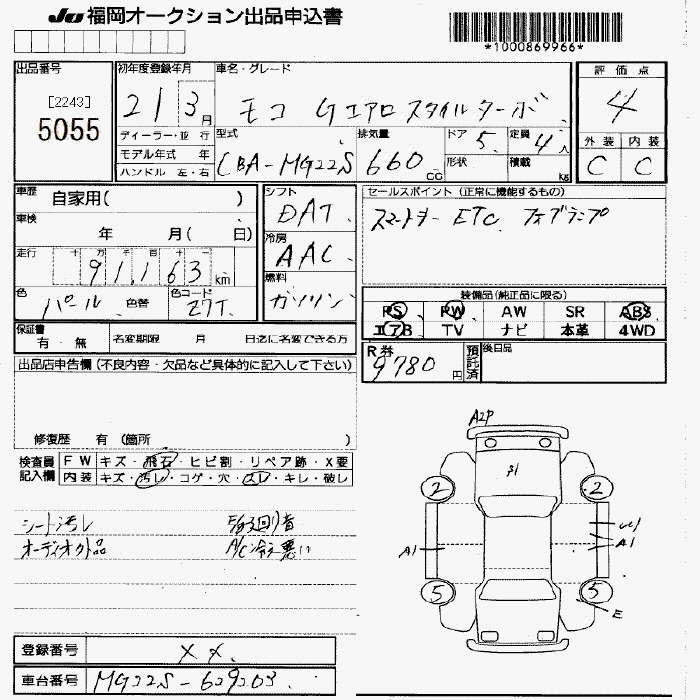 JU 福岡オークション出品申込書
*1000869966*
出品番号
[2243]
5055
初年度登録年月
21 3月
ディーラー・並 行
モデル年式 年
ハンドル 左・右
車名・グレード
モコ Gエアロスタイルターボ
型式
CBA-MG22S
排気量
660 CC
ドア
5
定員
4人
形状
積載
kg
評価点
4
外装 内装
C C
車歴
自家用( )
車検
年 月( 日)
走行 十 万 千 百 十 一
91,163 km
色
パール
色替
色コード
Z7T
シフト
DAT
冷房
AAC
燃料
ガソリン
セールスポイント (正常に機能するもの)
スマートキー ETC フォグランプ
装備品(純正品に限る)
PS PW AW SR ABS
エアB TV ナビ 本革 4WD
保証書
有・無
名変期限 月 日迄に名変できる方
R券
9780円
預託済
後日品
出品店申告欄(不良内容・欠品など具体的に記入して下さい)
修復歴 有 (箇所 )
検査員記入欄
FW キズ・飛石・ヒビ割・リペア跡・X要
内装 キズ・汚レ・コゲ・穴・スレ・キレ・破レ
シート汚レ
オーディオ欠品
A/C冷え悪い
A2P
A1
2 2
A1 A1
5 5
E
登録番号
××
車台番号
MG22S-629203